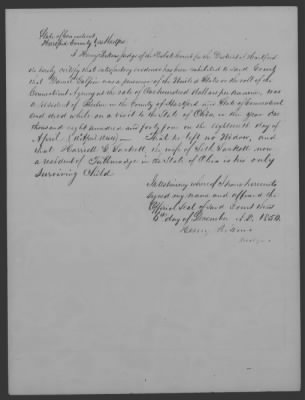 State of Connecticut
Hartford County
I Henry Perkins judge of the Probate Court for the District of Hartford
do hereby certify that satisfactory evidence has been exhibited to said Court
that Daniel Galpin was a pensioner of the United States on the roll of the
Connecticut Agency at the rate of one hundred dollars per annum, was
a resident of Berlin in the County of Hartford and State of Connecticut
and died while on a visit to the State of Ohio in the year One
thousand eight hundred and forty four on the Eighteenth day of
April — That he left no Widow, and
that Harriett C. Sackett, the wife of Seth Sackett now
a resident of Tallmadge in the State of Ohio is his only
Surviving Child.
In testimony whereof I have hereunto
signed my name and affixed the
Official Seal of said Court this
6th day of December A.D. 1850.
Henry Perkins
Judge